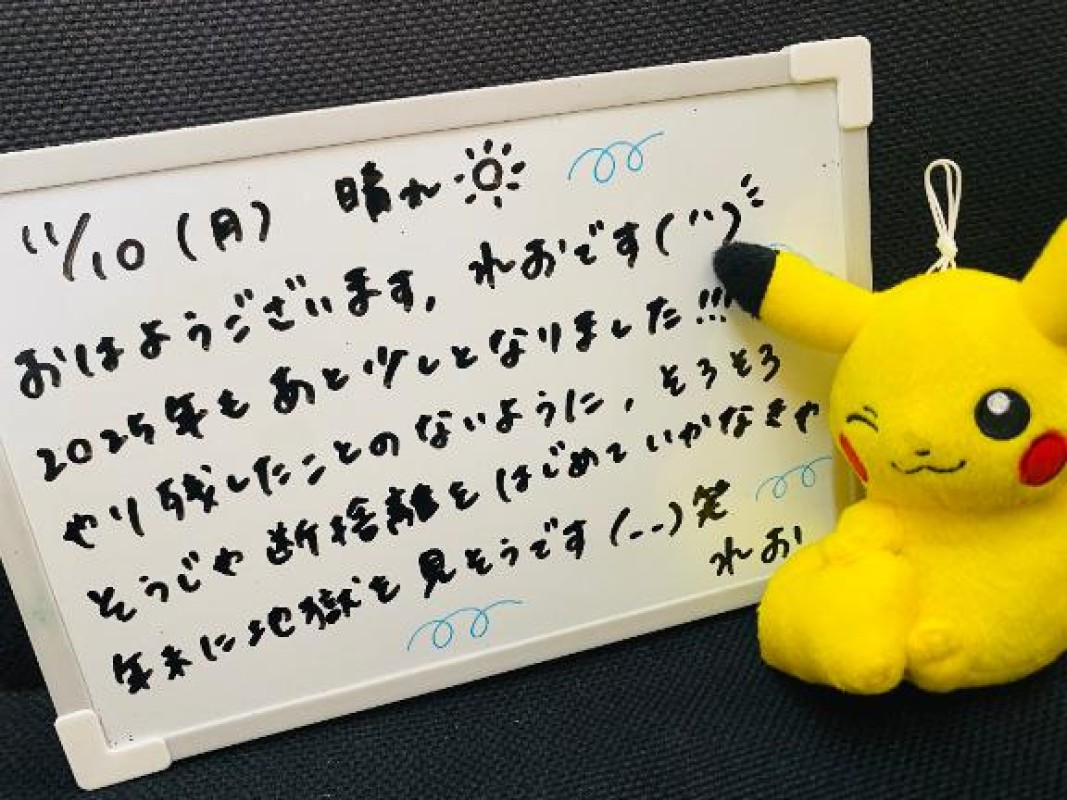 11/10(月) 晴れ
おはようございます、れおです(¨)
2025年もあと少しとなりました!!!
やり残したことのないように、そろそろ
そうじや断捨離をはじめていかなきゃ
年末に地獄を見そうです(--)笑
れお